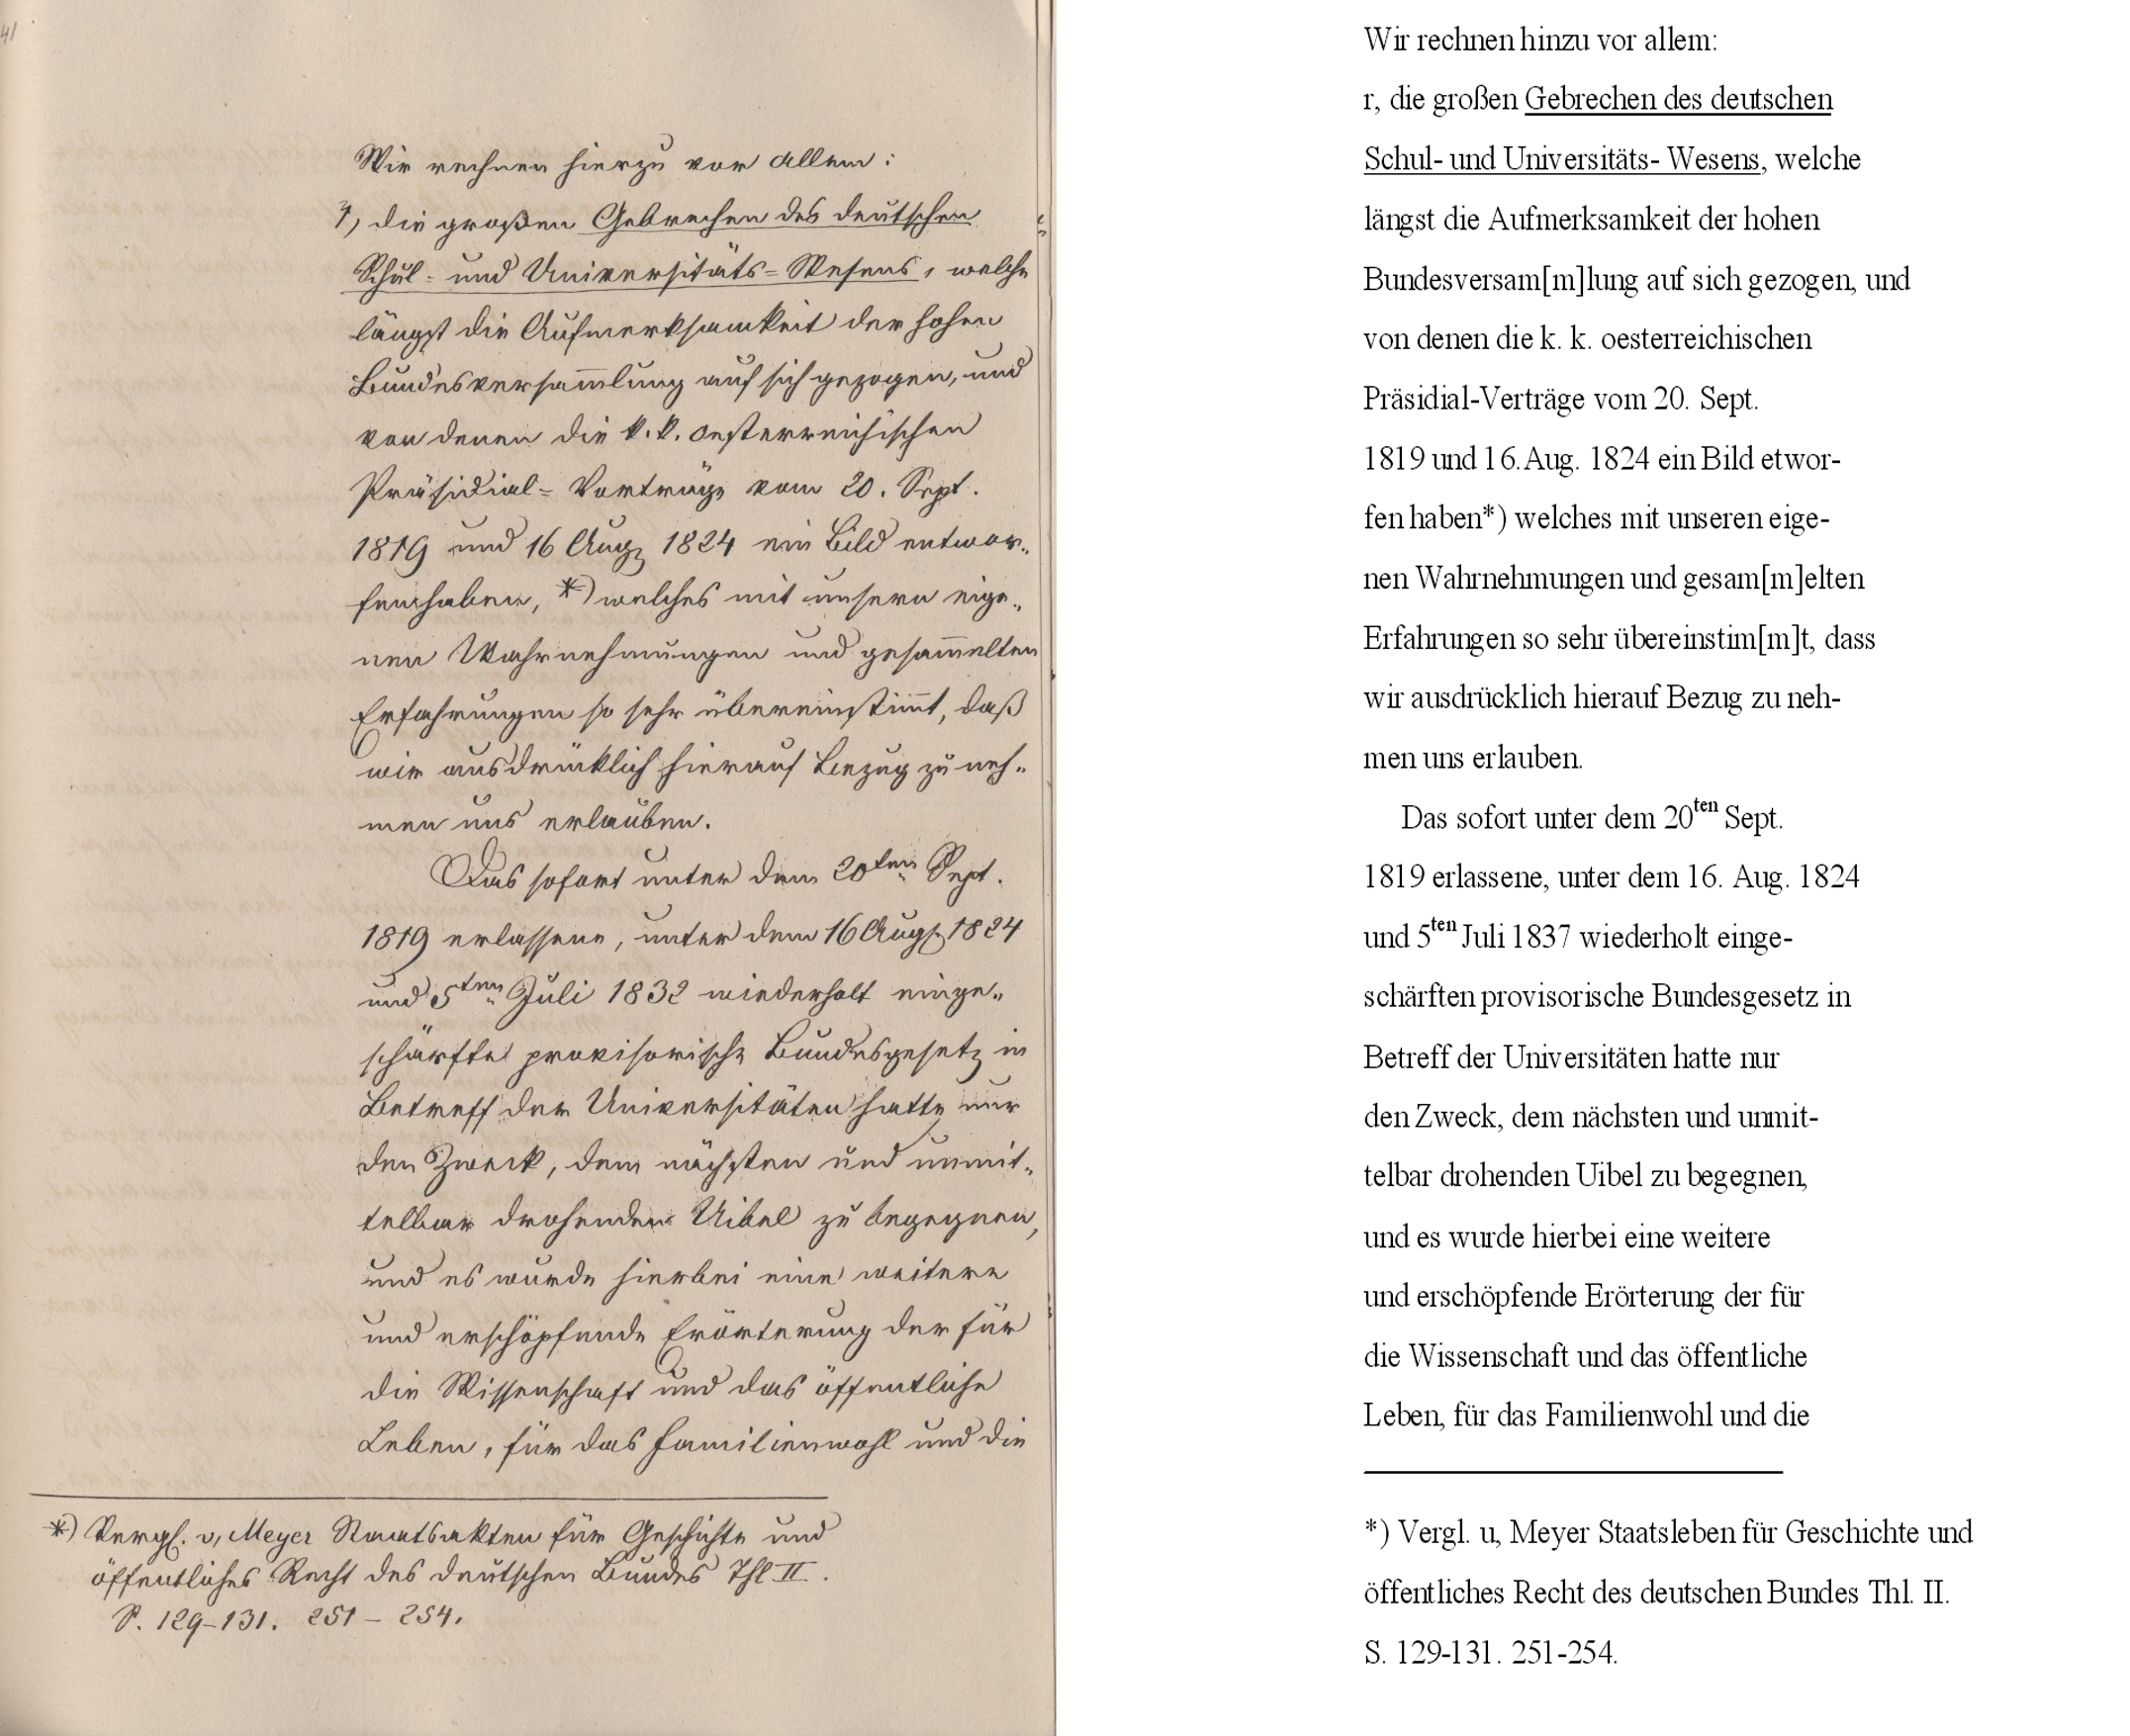 41
Wir rechnen hierzu vor allem:
1, die großen Gebrechen des deutschen
Schul- und Universitäts-Wesens, welche
längst die Aufmerksamkeit der hohen
Bundesversam̅lung auf sich gezogen, und
von denen die k. k. oesterreichischen
Präsidial-Vorträge vom 20. Sept.
1819 und 16 Aug. 1824 ein Bild entwor-
fen haben, *) welches mit unsern eige-
nen Wahrnehmungen und gesam̅elten
Erfahrungen so sehr übereinstim̅t, daß
wir ausdrücklich hierauf Bezug zu neh-
men uns erlauben.
Das sofort unter dem 20ten Sept.
1819 erlassene, unter dem 16 Aug. 1824
und 5ten Juli 1832 wiederholt einge-
schärfte provisorische Bundesgesetz in
Betreff der Universitäten hatte nur
den Zweck, dem nächsten und unmit-
telbar drohenden Uibel zu begegnen,
und es wurde hierbei eine weitere
und erschöpfende Erörterung der für
die Wissenschaft und das öffentliche
Leben, für das Familienwohl und die
*) Vergl. v. Meyer Staatsakten für Geschichte und
öffentliches Recht des deutschen Bundes Thl II.
S. 129-131. 251-254.
Wir rechnen hinzu vor allem:
r, die großen Gebrechen des deutschen
Schul- und Universitäts- Wesens, welche
längst die Aufmerksamkeit der hohen
Bundesversam[m]lung auf sich gezogen, und
von denen die k. k. oesterreichischen
Präsidial-Verträge vom 20. Sept.
1819 und 16.Aug. 1824 ein Bild etwor-
fen haben*) welches mit unseren eige-
nen Wahrnehmungen und gesam[m]elten
Erfahrungen so sehr übereinstim[m]t, dass
wir ausdrücklich hierauf Bezug zu neh-
men uns erlauben.
Das sofort unter dem 20ten Sept.
1819 erlassene, unter dem 16. Aug. 1824
und 5ten Juli 1837 wiederholt einge-
schärften provisorische Bundesgesetz in
Betreff der Universitäten hatte nur
den Zweck, dem nächsten und unmit-
telbar drohenden Uibel zu begegnen,
und es wurde hierbei eine weitere
und erschöpfende Erörterung der für
die Wissenschaft und das öffentliche
Leben, für das Familienwohl und die
*) Vergl. u, Meyer Staatsleben für Geschichte und
öffentliches Recht des deutschen Bundes Thl. II.
S. 129-131. 251-254.